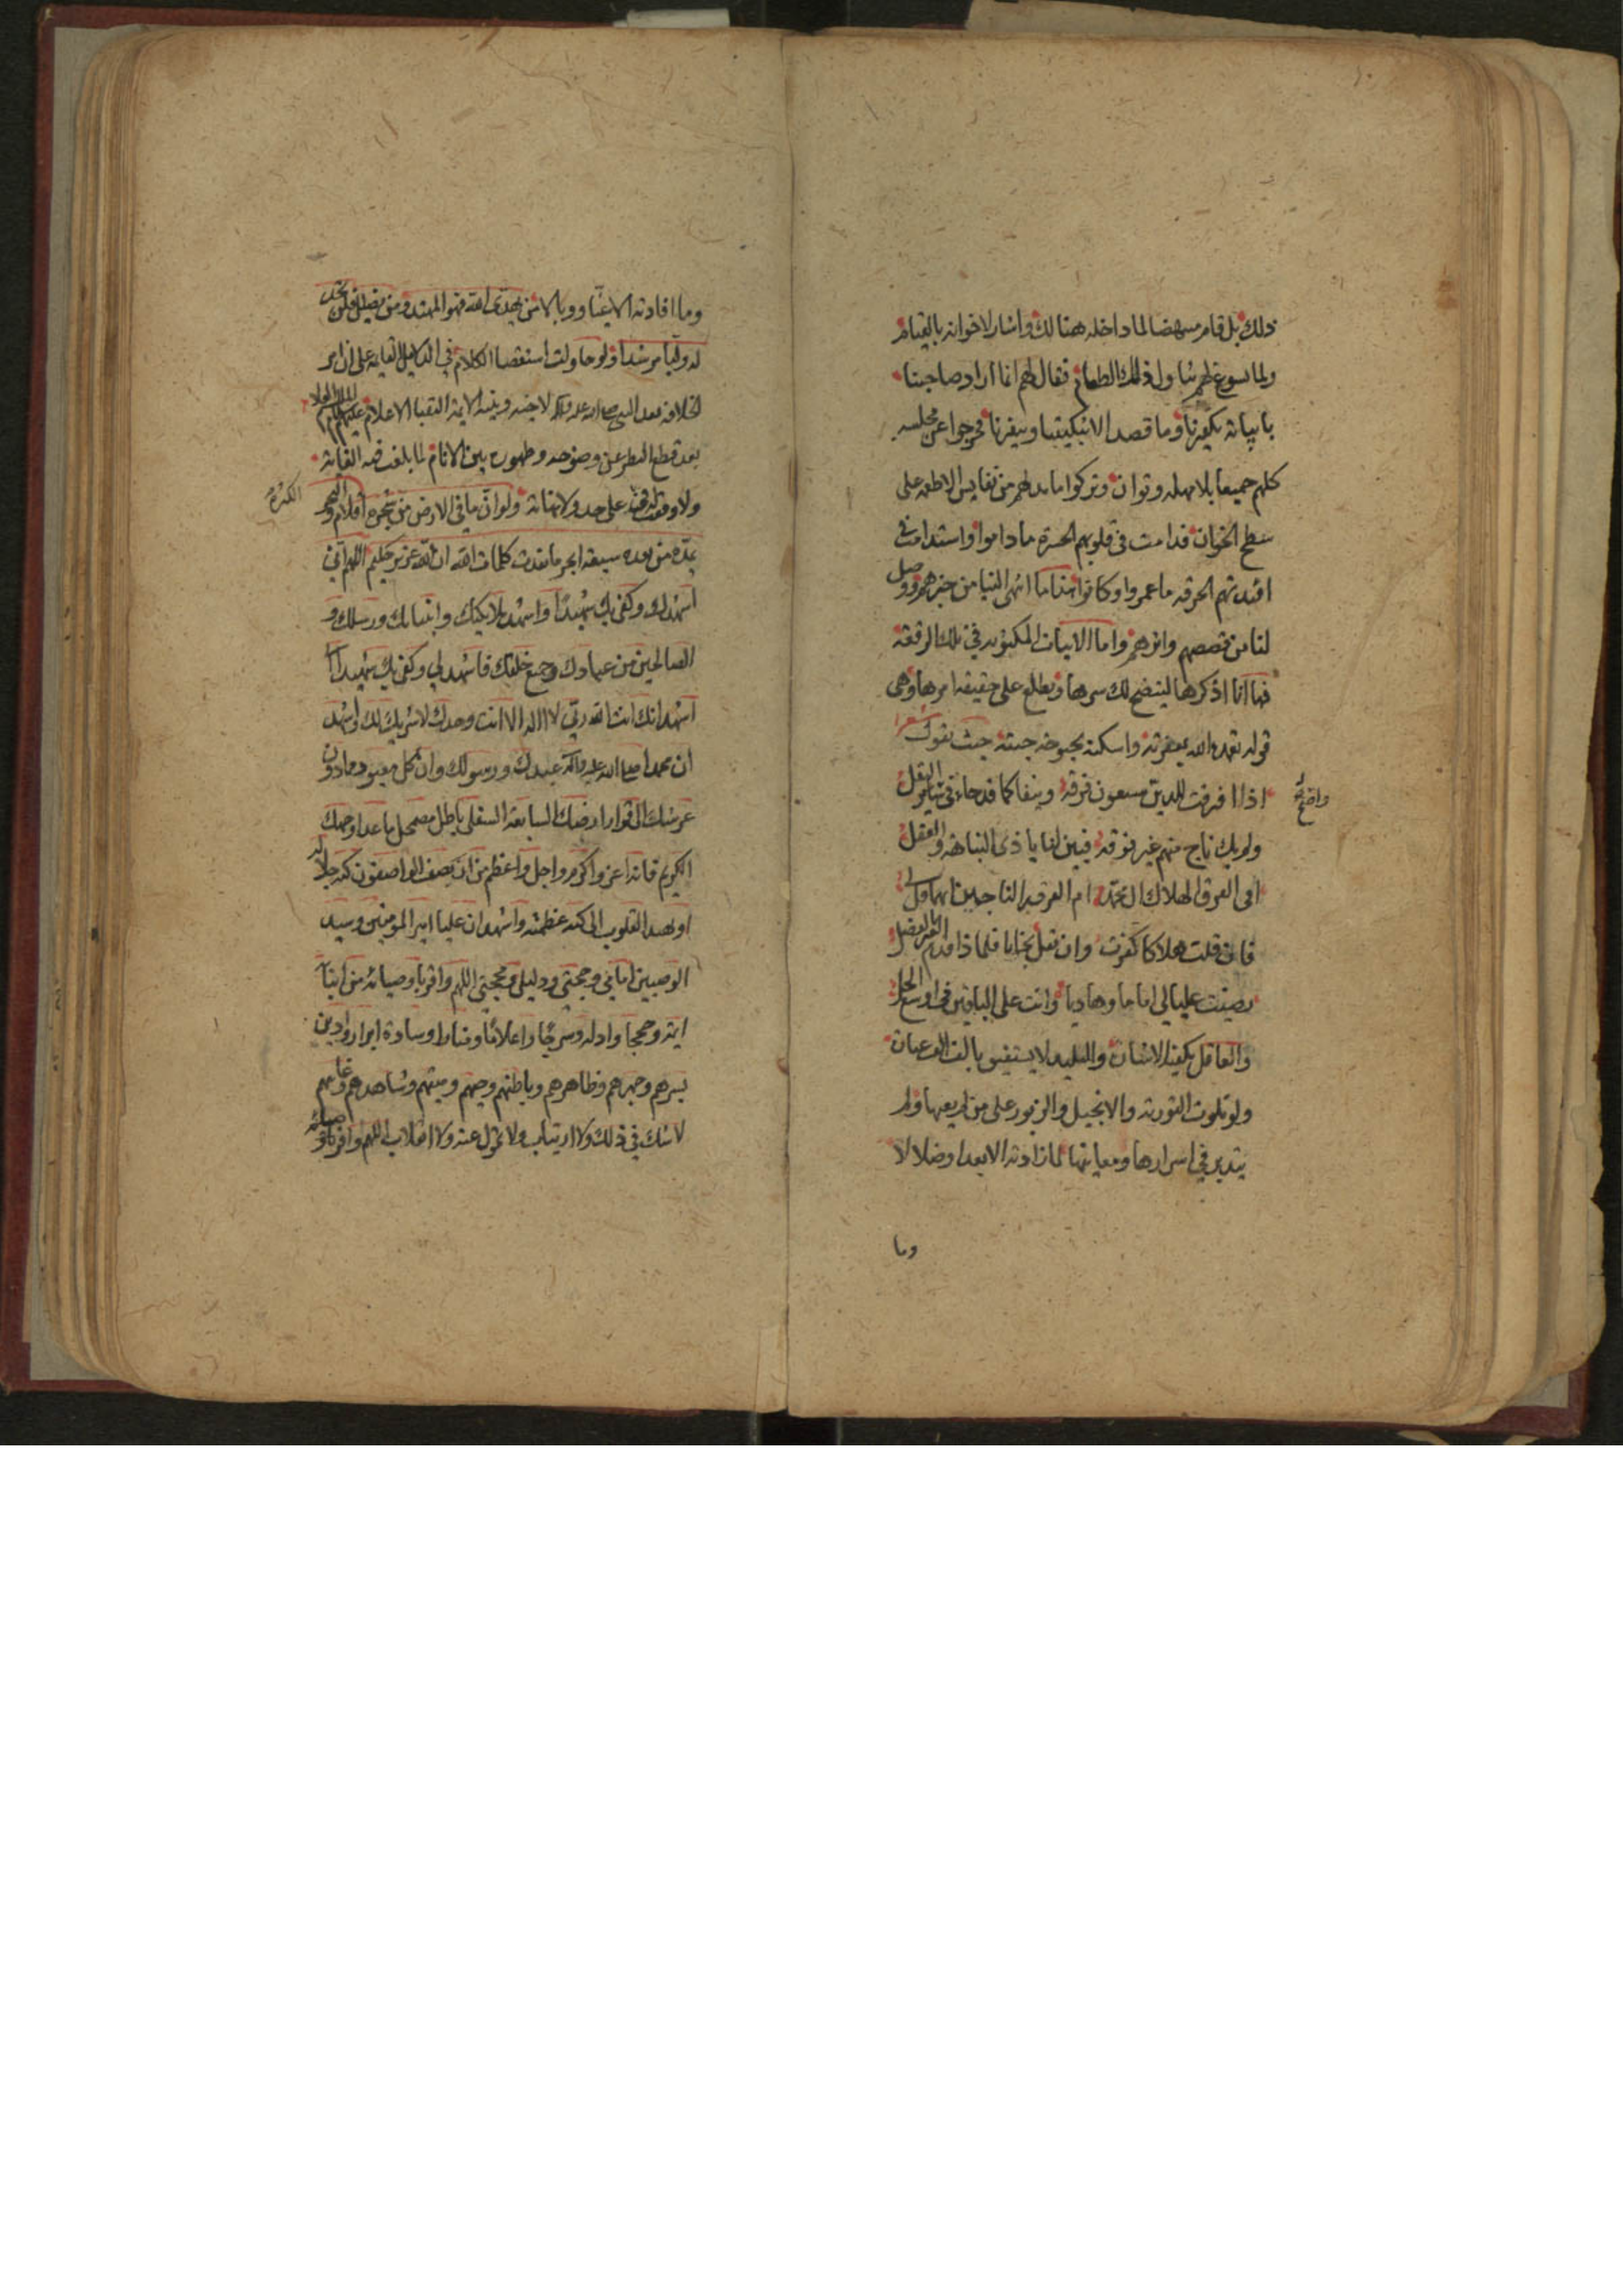 ذلك بل قام منهضا لما داخله هنالك واشار لاخوانه بالقيام
ولما يسوغ لهم تناول ذلك الطعام فقال لهم انما اراد صاحبنا
بابياته تكفيرنا وما قصد الا تبكيتنا وتنفيرنا فخرجوا عن مجلسه
كلهم جميعا بلا مهله وتوان وتركوا ما بد لهم من نفايس الاطعمه على
سطح الخوان فدامت في قلوبهم الحسرة ما داموا واستدامت في
افئدتهم الحرقه ما عمروا وكانوا هذا ما انهى الينا من خبرهم ووصل
لنا من قصصهم واثرهم واما الابيات المكتوبه في تلك الرقعة
فها انا اذكرها ليتضح لك سرها وتطلع على حقيقه امرها وهي
قوله تغمده الله بمغفرته واسكنه بحبوحه جنته حيث يقول شعرا
اذا افترقت للدين سبعون فرقة ونيفا كما قد جاء في سالم النقل
واضح
ولم يك ناج منهم غير فرقة فبين لنا يا ذى النباهة والعقل
افي الفرق الهلاك ال محمد ام الفرقه الناجين ايهما قل لي
فان قلت هلاكا كفرت وان تقل نجاتا فلماذا قدم الغير بالفضل
رضيت عليا لي اماما وهاديا وانت على الباقين في اوسع الحل
والعاقل يكفيه الاشان والبليد لا يستفيق بالف الف عبان
ولو تلوت التورية والانجيل والزبور على من لم يعيها ولم
يتدبر في اسرارها ومعانيها لما زادته الا بعدا وضلالا لا
وما
وما افادته الا عيًّا ووبالا من يهدى الله فهو المهتد ومن يضلل فلن تجد
له وليا مرشدا ولو حاولت استقصا الكلام في الدلايل القايمه على ان امر
الخلافه بعد النبي صلى الله عليه واله لاخيه وبنيه الايمة النقبا الاعلام عليهم
بعد قطع النظر عن وضوحه وظهوره بين الانام لما بلغت فيه الغاية
ولا وقفت فيه على حد ولا نهاية ولو ان ما في الارض من شجرة اقلام والبحر
الكثره
يمده من بعده سبعة ابحر ما نفدت كلمات الله ان الله عزيز حكيم اللهم اني
اشهدك وكفى بك شهيدًا واشهد ملايكتك وانبيائك ورسلك و
الصالحين من عبادك وجميع خلقك فاشهد لي وكفى بك شهيدا
اشهد انك انت الله ربي لا اله الا انت وحدك لا شريك لك واشهد
ان محمدا صلى الله عليه واله عبدك ورسولك وان كل معبود مما دون
عرشك الى قرار ارضك السابعة السفلى باطل مضمحل ما عدا وجهك
الكريم فانه اعز واكرم واجل واعظم من ان يصف الواصفون كنه جلاله
او تهتد القلوب الى كنه عظمته واشهد ان عليا امير المومنين وسيد
الوصيين امامي وحجتي ودليلي ومحجتي اللهم واقر باوصيائه من ابنائه
ايمة وحججا وادلة وسرجًا واعلامًا ومنارا وسادة ابرارا وادين
بسرهم وجهرهم وظاهرهم وباطنهم وحيهم وميتهم وشاهدهم وغايبهم
لا شك في ذلك ولا ارتياب ولا تحول عنه ولا انقلاب اللهم واقر باوصيائه